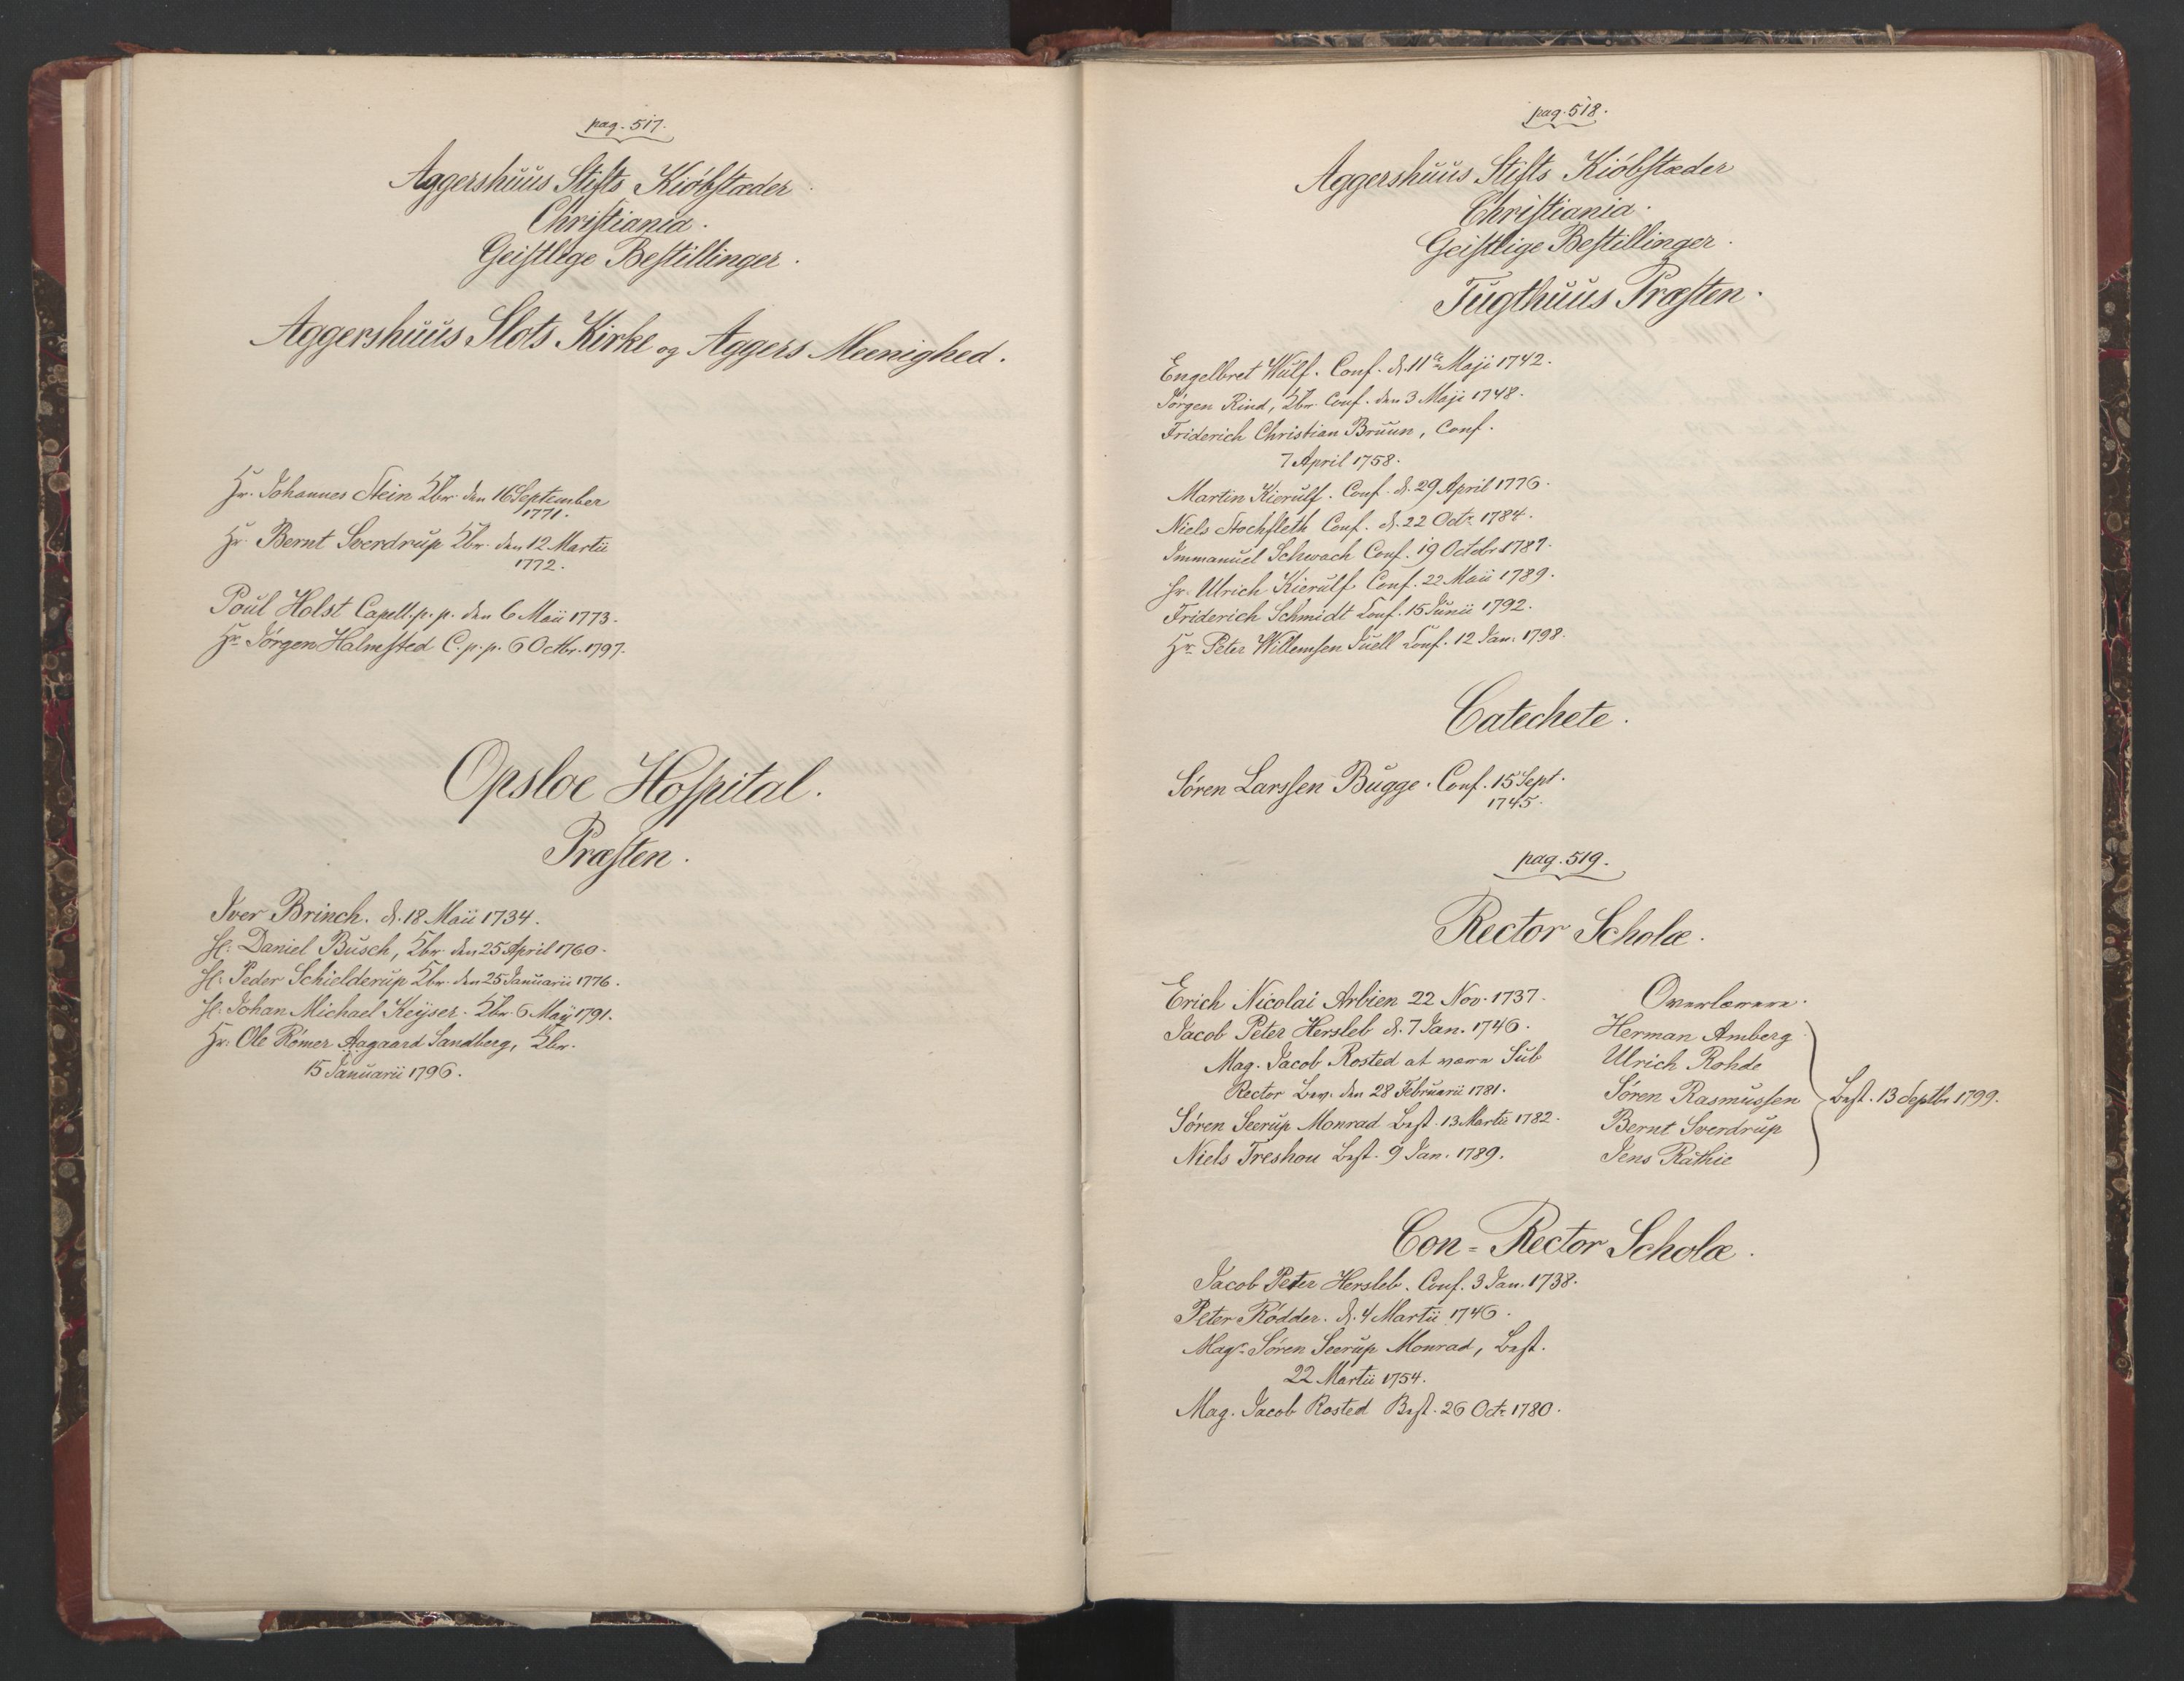 pag. 517.
Aggershuus Stifts Kiöbstæder.
Christiania.
Geistlige Bestillinger.
Aggershuus Slots Kirke og Aggers Meenighed.
Hr. Johannes Stein Kbr. den 16 September
1771.
Hr. Bernt Sverdrup Kbr. den 12 Martii
1772.
Poul Holst Capell. p. p. den 6 Maii 1773.
Hr. Jörgen Halmsted C. p. p. 6 Octbr. 1797.
Opsloe Hospital.
Præsten.
Iver Brinch. d. 18 Maii 1734.
H: Daniel Busch, Kbr. den 25 April 1760.
H: Peder Schielderup Kbr. den 25 Januarii 1776.
H: Johan Michael Keyser. Kbr. 6 May 1791.
Hr: Ole Römer Aagaard Sandberg, Kbr.
15 Januarii 1796.
pag. 518.
Aggershuus Stifts Kiöbstæder
Christiania.
Geistlige Bestillinger.
Tugthuus Præsten.
Engelbret Wulf. Conf. d. 11te Maji 1742.
Jörgen Rind, Kbr. Conf. den 3 Maji 1748.
Friderich Christian Bruun, Conf.
7 April 1758.
Martin Kierulf. Conf. d. 29 April 1776.
Niels Stochfleth Conf. d. 22 Octr. 1784.
Immanuel Schwach Conf. 19 Octobr 1787.
Hr. Ulrich Kierulf Conf. 22 Maii 1789.
Friderich Schmidt Conf. 15 Junii 1792.
Hr. Peter Willemsen Juell Conf. 12 Jan. 1798.
Catechete.
Sören Larssen Bugge. Conf. 15 Sept.
1745.
pag. 519.
Rector Scholæ.
Erich Nicolai Arbien 22 Nov. 1737.
Jacob Peter Hersleb d. 7 Jan. 1746.
Mag. Jacob Rosted at være Sub
Rector Bev. den 28 Februarii 1781.
Sören Seerup Monrad Best. 13 Martii 1782.
Niels Treshou Best. 9 Jan. 1789.
Overlærere.
Herman Amberg
Ulrich Rohde
Sören Rasmussen
Bernt Sverdrup
Jens Rathie
Best. 13 Septbr 1799.
Con-Rector Scholæ.
Jacob Peter Hersleb. Conf. 3 Jan. 1738.
Peter Rödder. d. 4 Martii 1746.
Magr. Sören Seerup Monrad, Best.
22 Martii 1754.
Mag. Jacob Rosted Best. 26 Octr. 1780.